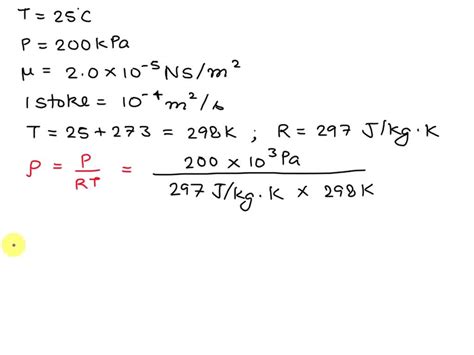 T = 25°C
P = 200 kPa
μ = 2.0 × 10⁻⁵ Ns/m²
1 stoke = 10⁻⁴ m²/s
T = 25 + 273 = 298 K ; R = 297 J/kg.K
ρ = P/RT = 200 × 10³ Pa / 297 J/kg.K × 298 K